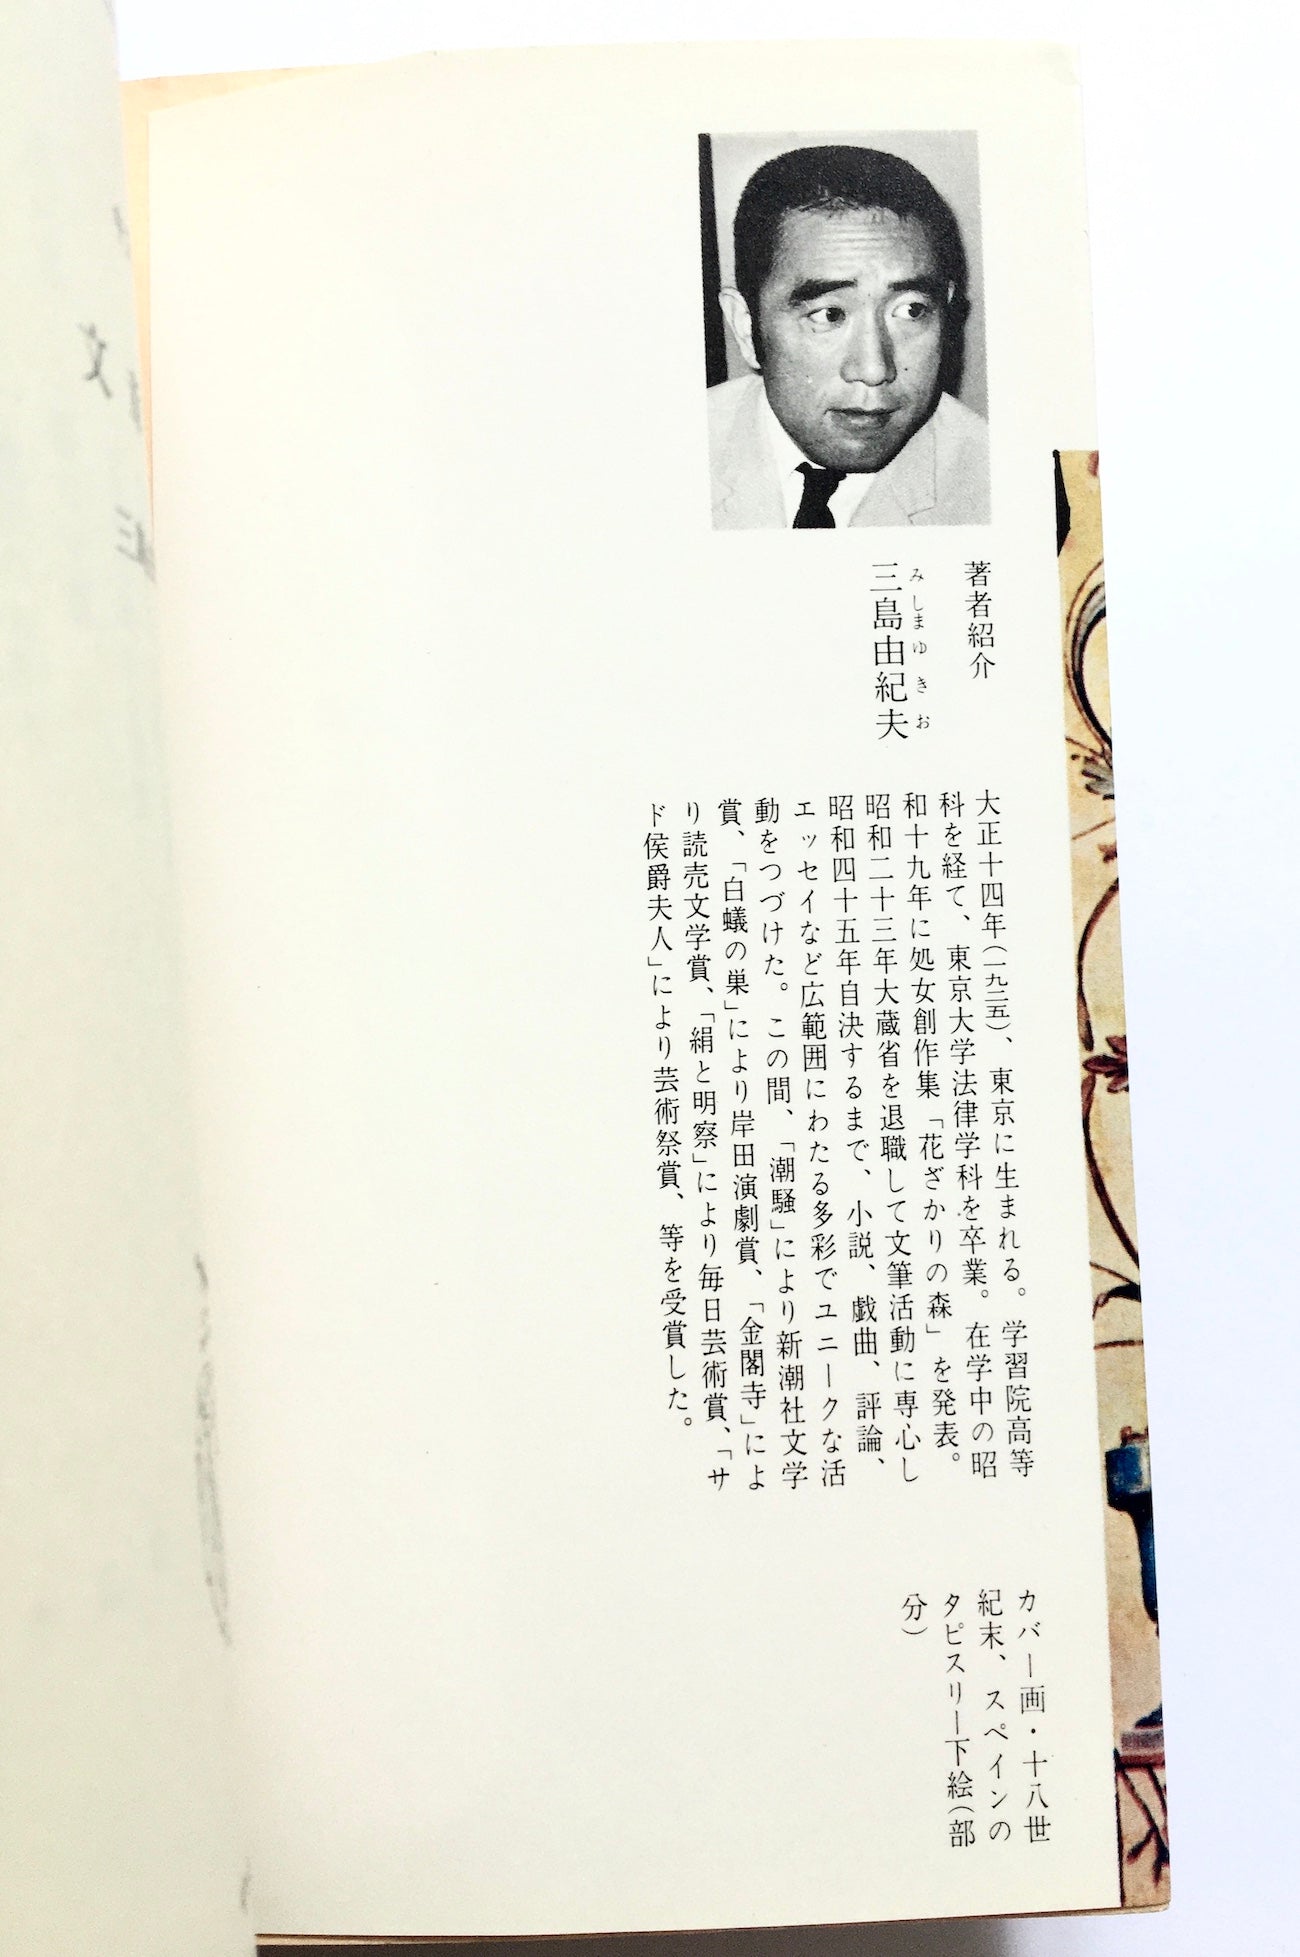 著者紹介
みしまゆきお
三島由紀夫
大正十四年(一九二五)、東京に生まれる。学習院高等
科を経て、東京大学法律学科を卒業。在学中の昭
和十九年に処女創作集「花ざかりの森」を発表。
昭和二十三年大蔵省を退職して文筆活動に専心し
昭和四十五年自決するまで、小説、戯曲、評論、
エッセイなど広範囲にわたる多彩でユニークな活
動をつづけた。この間、「潮騒」により新潮社文学
賞、「白蟻の巣」により岸田演劇賞、「金閣寺」によ
り読売文学賞、「絹と明察」により毎日芸術賞、「サ
ド侯爵夫人」により芸術祭賞、等を受賞した。
カバー画・十八世
紀末、スペインの
タピスリー下絵(部
分)